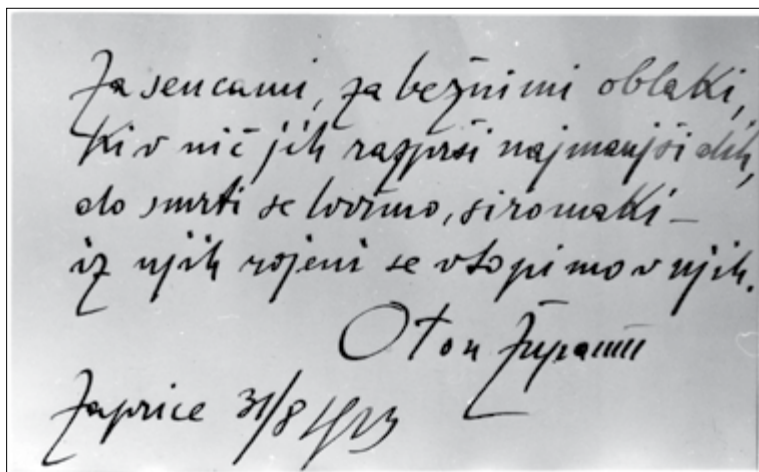 Za sencami, za bežnimi oblaki,
ki v nič jih razprši najmanjši dih,
do smrti se lovimo, siromaki –
iz njih rojeni se vtopimo v njih.
Oton Župančič
Zaprice 31/8 1923